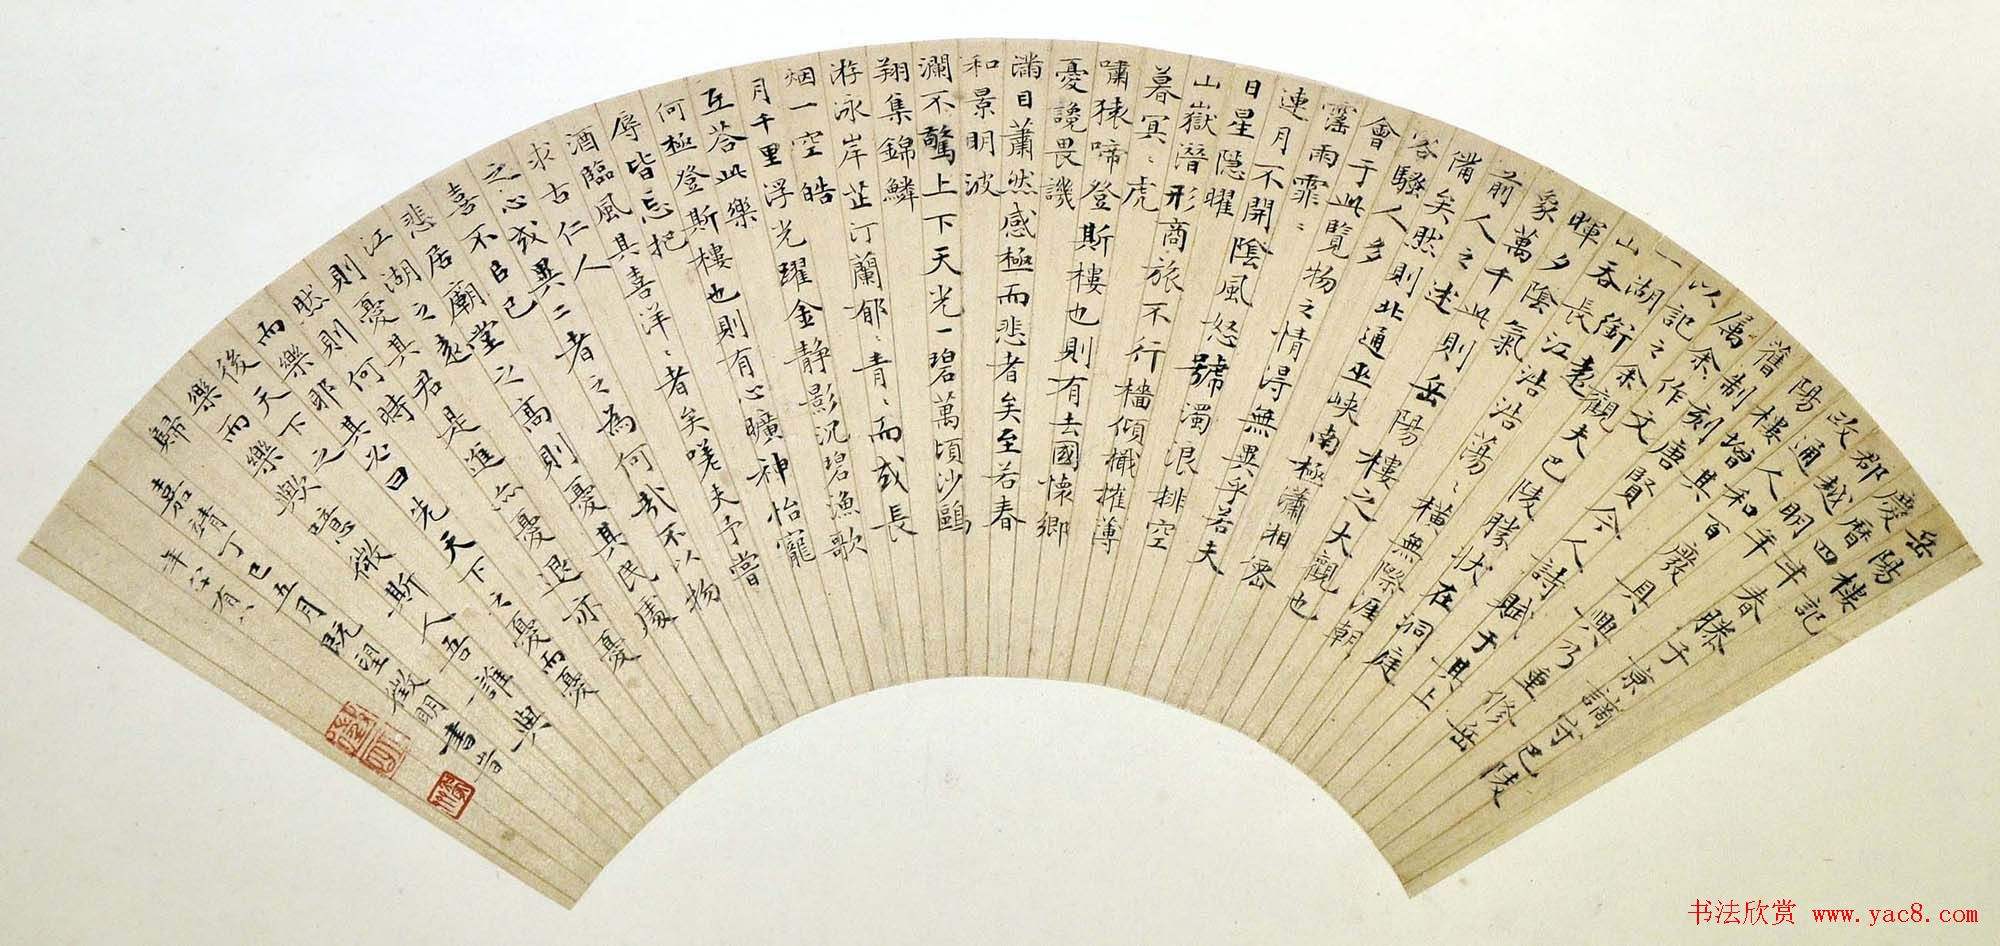 岳陽樓記
慶曆四年春滕子京謫守巴陵
郡越明年
政通人和百廢具興乃重修岳
陽樓增其
舊制刻唐賢今人詩賦于其上
屬余作文
以記之余觀夫巴陵勝狀在洞庭
一湖銜遠
山吞長江浩浩蕩〻橫無際涯朝
暉夕陰氣
象萬千此則岳陽樓之大觀也
前人之述
備矣然則北通巫峽南極瀟湘遷
客騷人多
會于此覽物之情得無異乎若夫
霪雨霏〻
連月不開陰風怒號濁浪排空
日星隱曜
山嶽潛形商旅不行檣傾檝摧薄
暮冥〻虎
嘯猿啼登斯樓也則有去國懷鄉
憂讒畏譏
滿目蕭然感極而悲者矣至若春
和景明波
瀾不驚上下天光一碧萬頃沙鷗
翔集錦鱗
游泳岸芷汀蘭郁〻青〻而或長
烟一空皓
月千里浮光躍金靜影沉碧漁歌
互答此樂
何極登斯樓也則有心曠神怡寵
辱皆忘把
酒臨風其喜洋〻者矣嗟夫予嘗
求古仁人
之心或異二者之為何哉不以物
喜不以己
悲居廟堂之高則憂其民處
江湖之遠
則憂其君是進亦憂退亦憂
然則何時
而樂耶其必曰先天下之憂而憂
後天下之
樂而樂歟噫微斯人吾誰與
歸
嘉靖丁巳五月既望徵明書時
年八十有八
书法欣赏 www.yac8.com